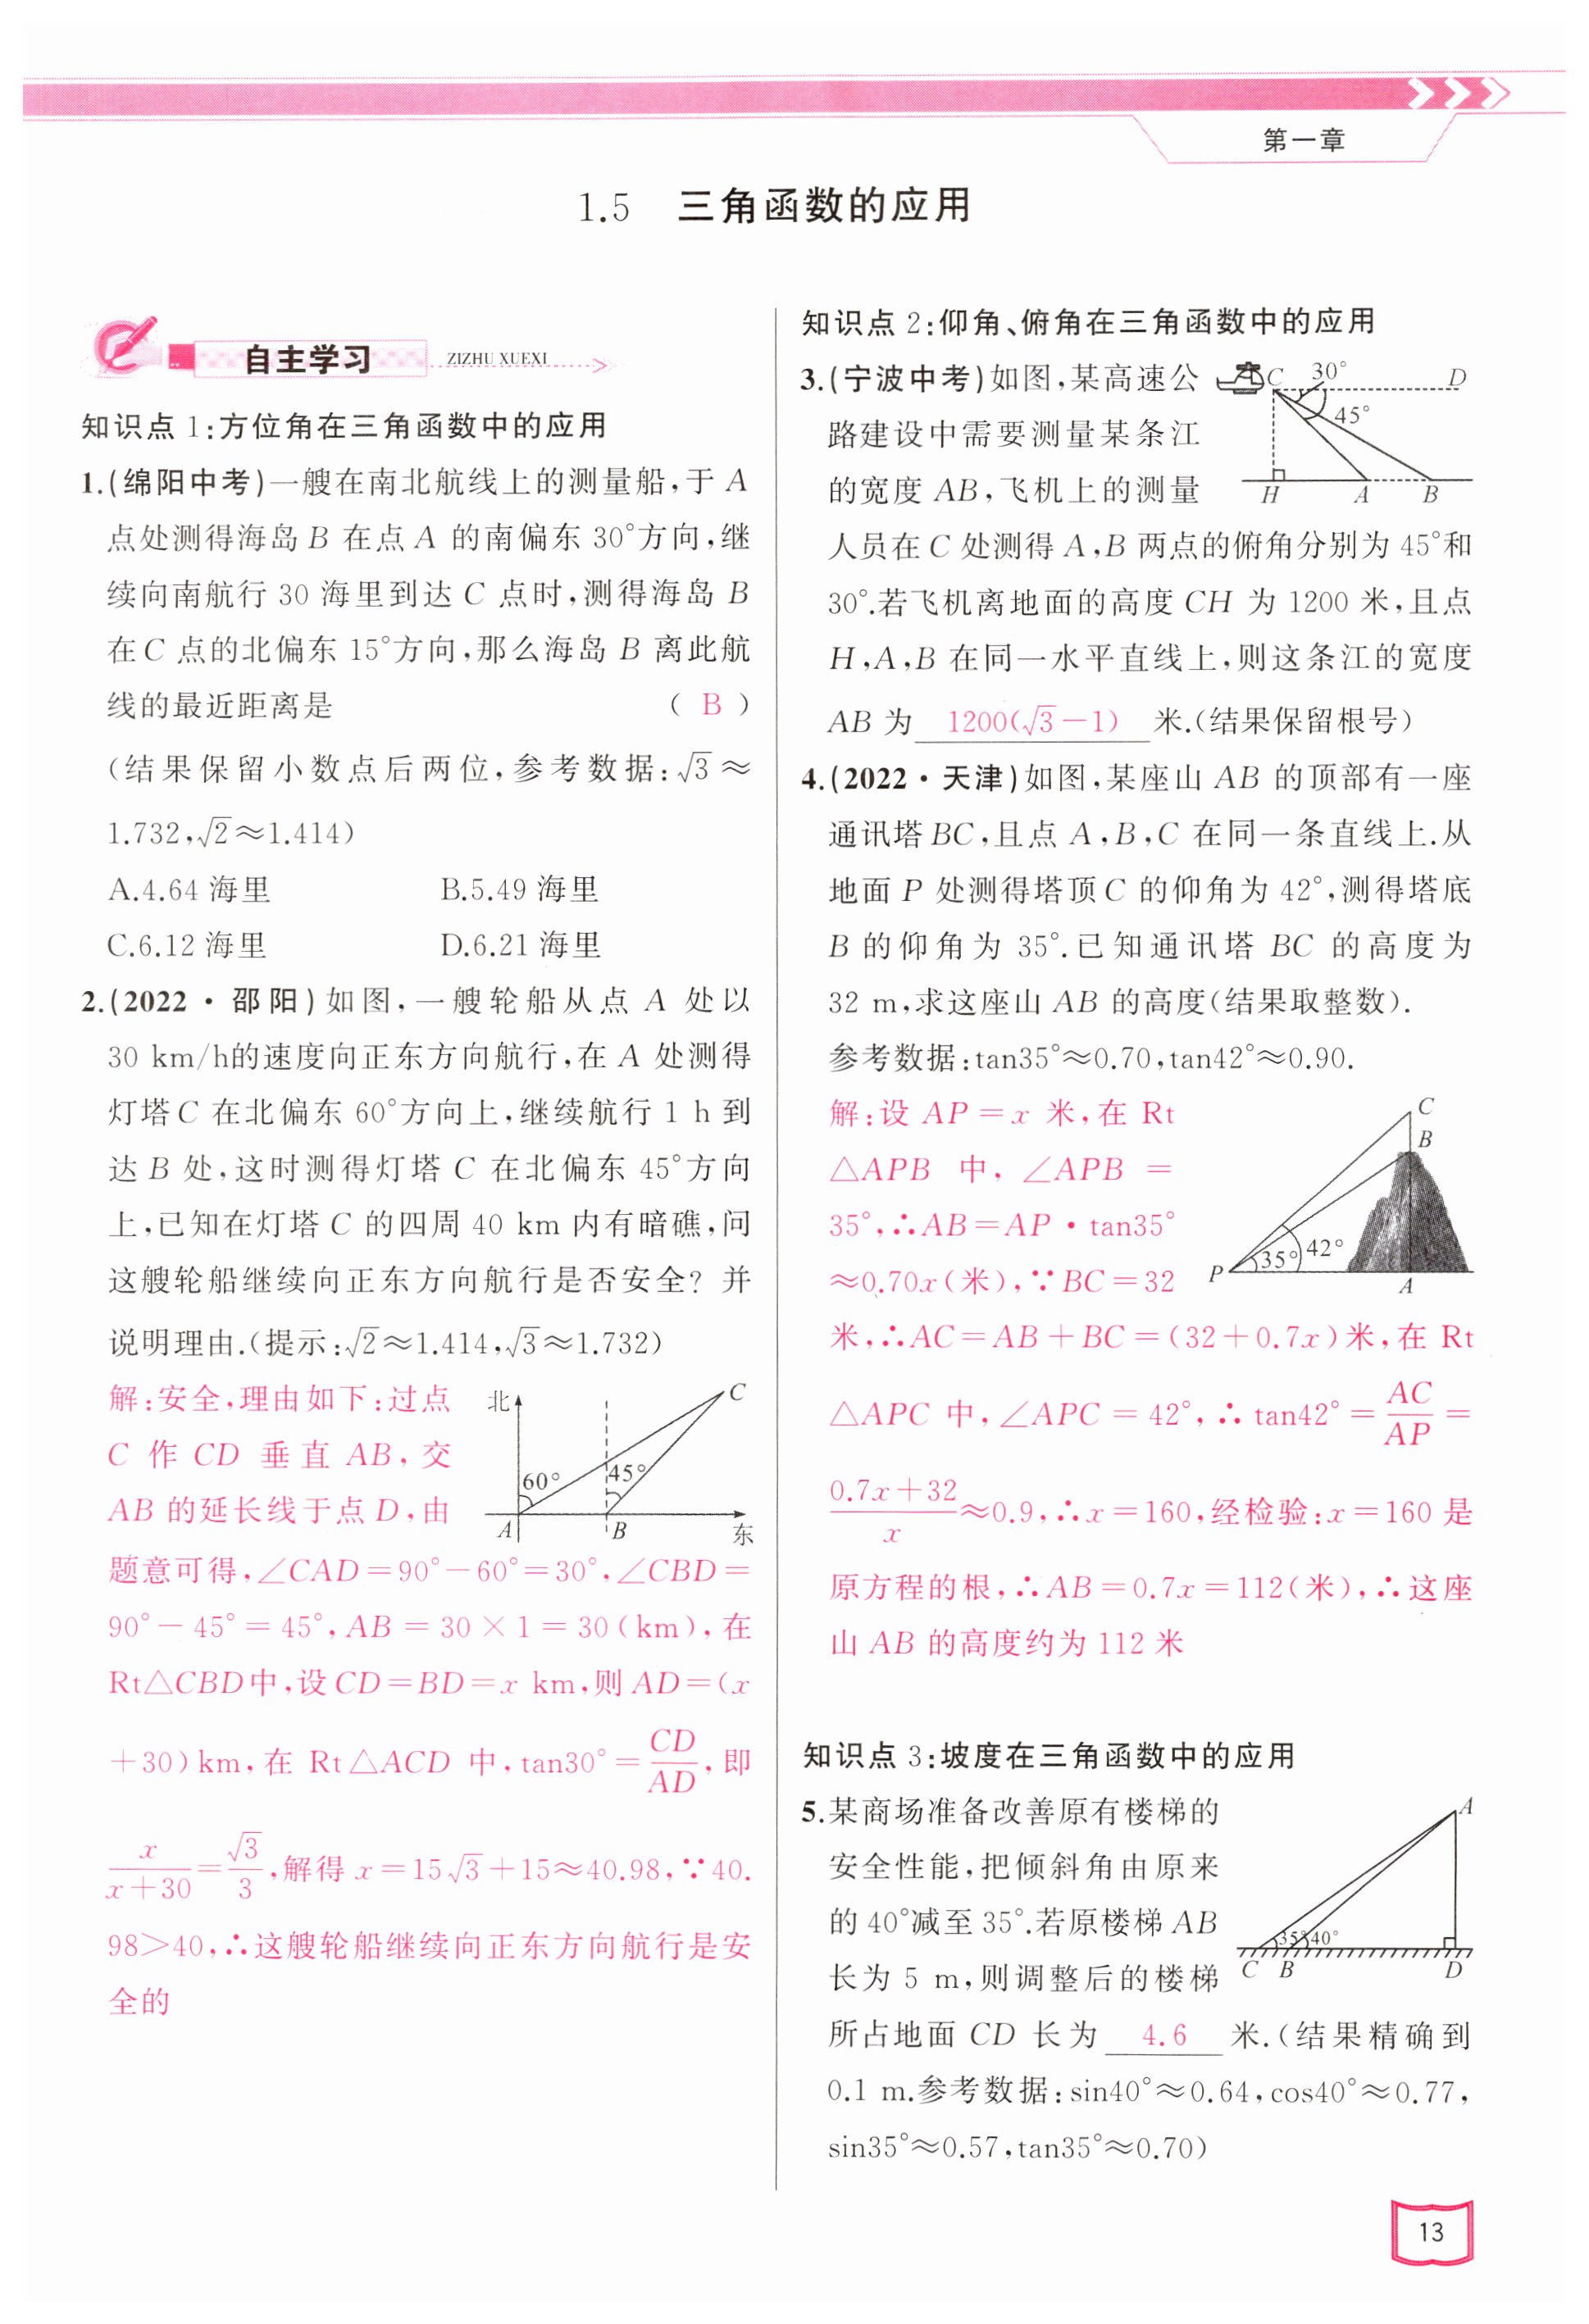 第一章
1.5 三角函数的应用
自主学习 ZIZHU XUEXI
知识点 1:方位角在三角函数中的应用
1.(绵阳中考)一艘在南北航线上的测量船,于 A
点处测得海岛 B 在点 A 的南偏东 30°方向,继
续向南航行 30 海里到达 C 点时,测得海岛 B
在 C 点的北偏东 15°方向,那么海岛 B 离此航
线的最近距离是 ( B )
(结果保留小数点后两位,参考数据:√3≈
1.732,√2≈1.414)
A.4.64 海里 B.5.49 海里
C.6.12 海里 D.6.21 海里
2.(2022·邵阳)如图,一艘轮船从点 A 处以
30 km/h的速度向正东方向航行,在 A 处测得
灯塔 C 在北偏东 60°方向上,继续航行 1 h 到
达 B 处,这时测得灯塔 C 在北偏东 45°方向
上,已知在灯塔 C 的四周 40 km 内有暗礁,问
这艘轮船继续向正东方向航行是否安全? 并
说明理由.(提示:√2≈1.414,√3≈1.732)
解:安全,理由如下:过点
C 作 CD 垂直 AB,交
AB 的延长线于点 D,由
北 C
60° 45°
A B 东
题意可得,∠CAD=90°-60°=30°,∠CBD=
90°-45°=45°,AB=30×1=30(km),在
Rt△CBD中,设 CD=BD=x km,则 AD=(x
+30)km,在 Rt△ACD 中,tan30°=CD/AD,即
x/(x+30)=√3/3,解得 x=15√3+15≈40.98,∵40.
98>40,∴这艘轮船继续向正东方向航行是安
全的
知识点 2:仰角、俯角在三角函数中的应用
3.(宁波中考)如图,某高速公
路建设中需要测量某条江
的宽度 AB,飞机上的测量
C 30° D
45°
H A B
人员在 C 处测得 A,B 两点的俯角分别为 45°和
30°.若飞机离地面的高度 CH 为 1200 米,且点
H,A,B 在同一水平直线上,则这条江的宽度
AB 为 1200(√3-1) 米.(结果保留根号)
4.(2022·天津)如图,某座山 AB 的顶部有一座
通讯塔 BC,且点 A,B,C 在同一条直线上.从
地面 P 处测得塔顶 C 的仰角为 42°,测得塔底
B 的仰角为 35°.已知通讯塔 BC 的高度为
32 m,求这座山 AB 的高度(结果取整数).
参考数据:tan35°≈0.70,tan42°≈0.90.
解:设 AP=x 米,在 Rt
△APB 中,∠APB=
35°,∴AB=AP·tan35°
≈0.70x(米),∵BC=32
C
B
35° 42°
P A
米,∴AC=AB+BC=(32+0.7x)米,在 Rt
△APC 中,∠APC=42°,∴tan42°=AC/AP=
(0.7x+32)/x≈0.9,∴x=160,经检验:x=160 是
原方程的根,∴AB=0.7x=112(米),∴这座
山 AB 的高度约为 112 米
知识点 3:坡度在三角函数中的应用
5.某商场准备改善原有楼梯的
安全性能,把倾斜角由原来
的 40°减至 35°.若原楼梯 AB
长为 5 m,则调整后的楼梯
A
35° 40°
C B D
所占地面 CD 长为 4.6 米.(结果精确到
0.1 m.参考数据:sin40°≈0.64,cos40°≈0.77,
sin35°≈0.57,tan35°≈0.70)
13